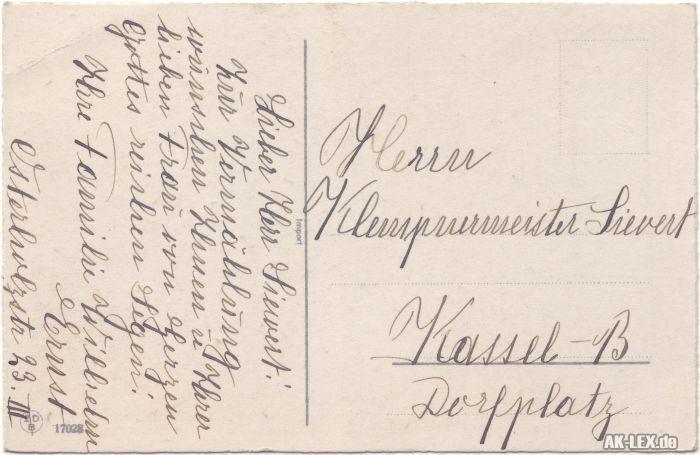 Lieber Herr Siewert!
Zur Vermählung
wünschen Ihnen u. Ihrer
lieben Frau von Herzen
Gottes reichen Segen!
Ihre Familie Wilhelm
Ernst
Osterholzstr 23. III
Import
17028
Herrn
Klempnermeister Sievert
Kassel-B
Dorfplatz
AK-LEX.de